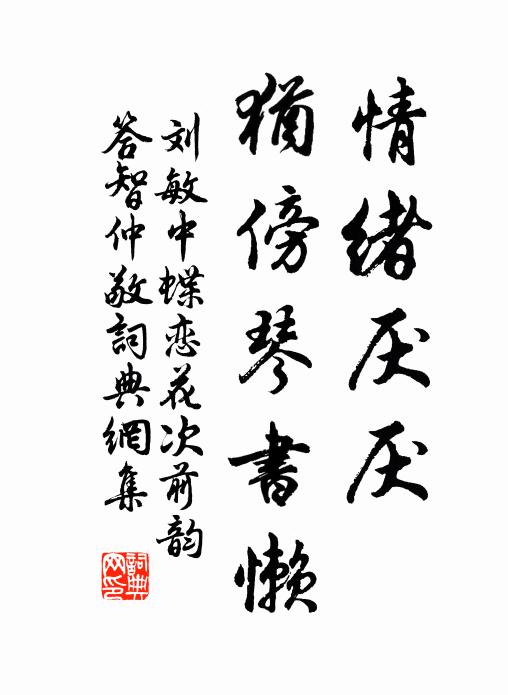 情绪厌厌
犹傍琴書懒
刘敏中蝶恋花次前韵
答智仲敬詞典網集
詞典
网印